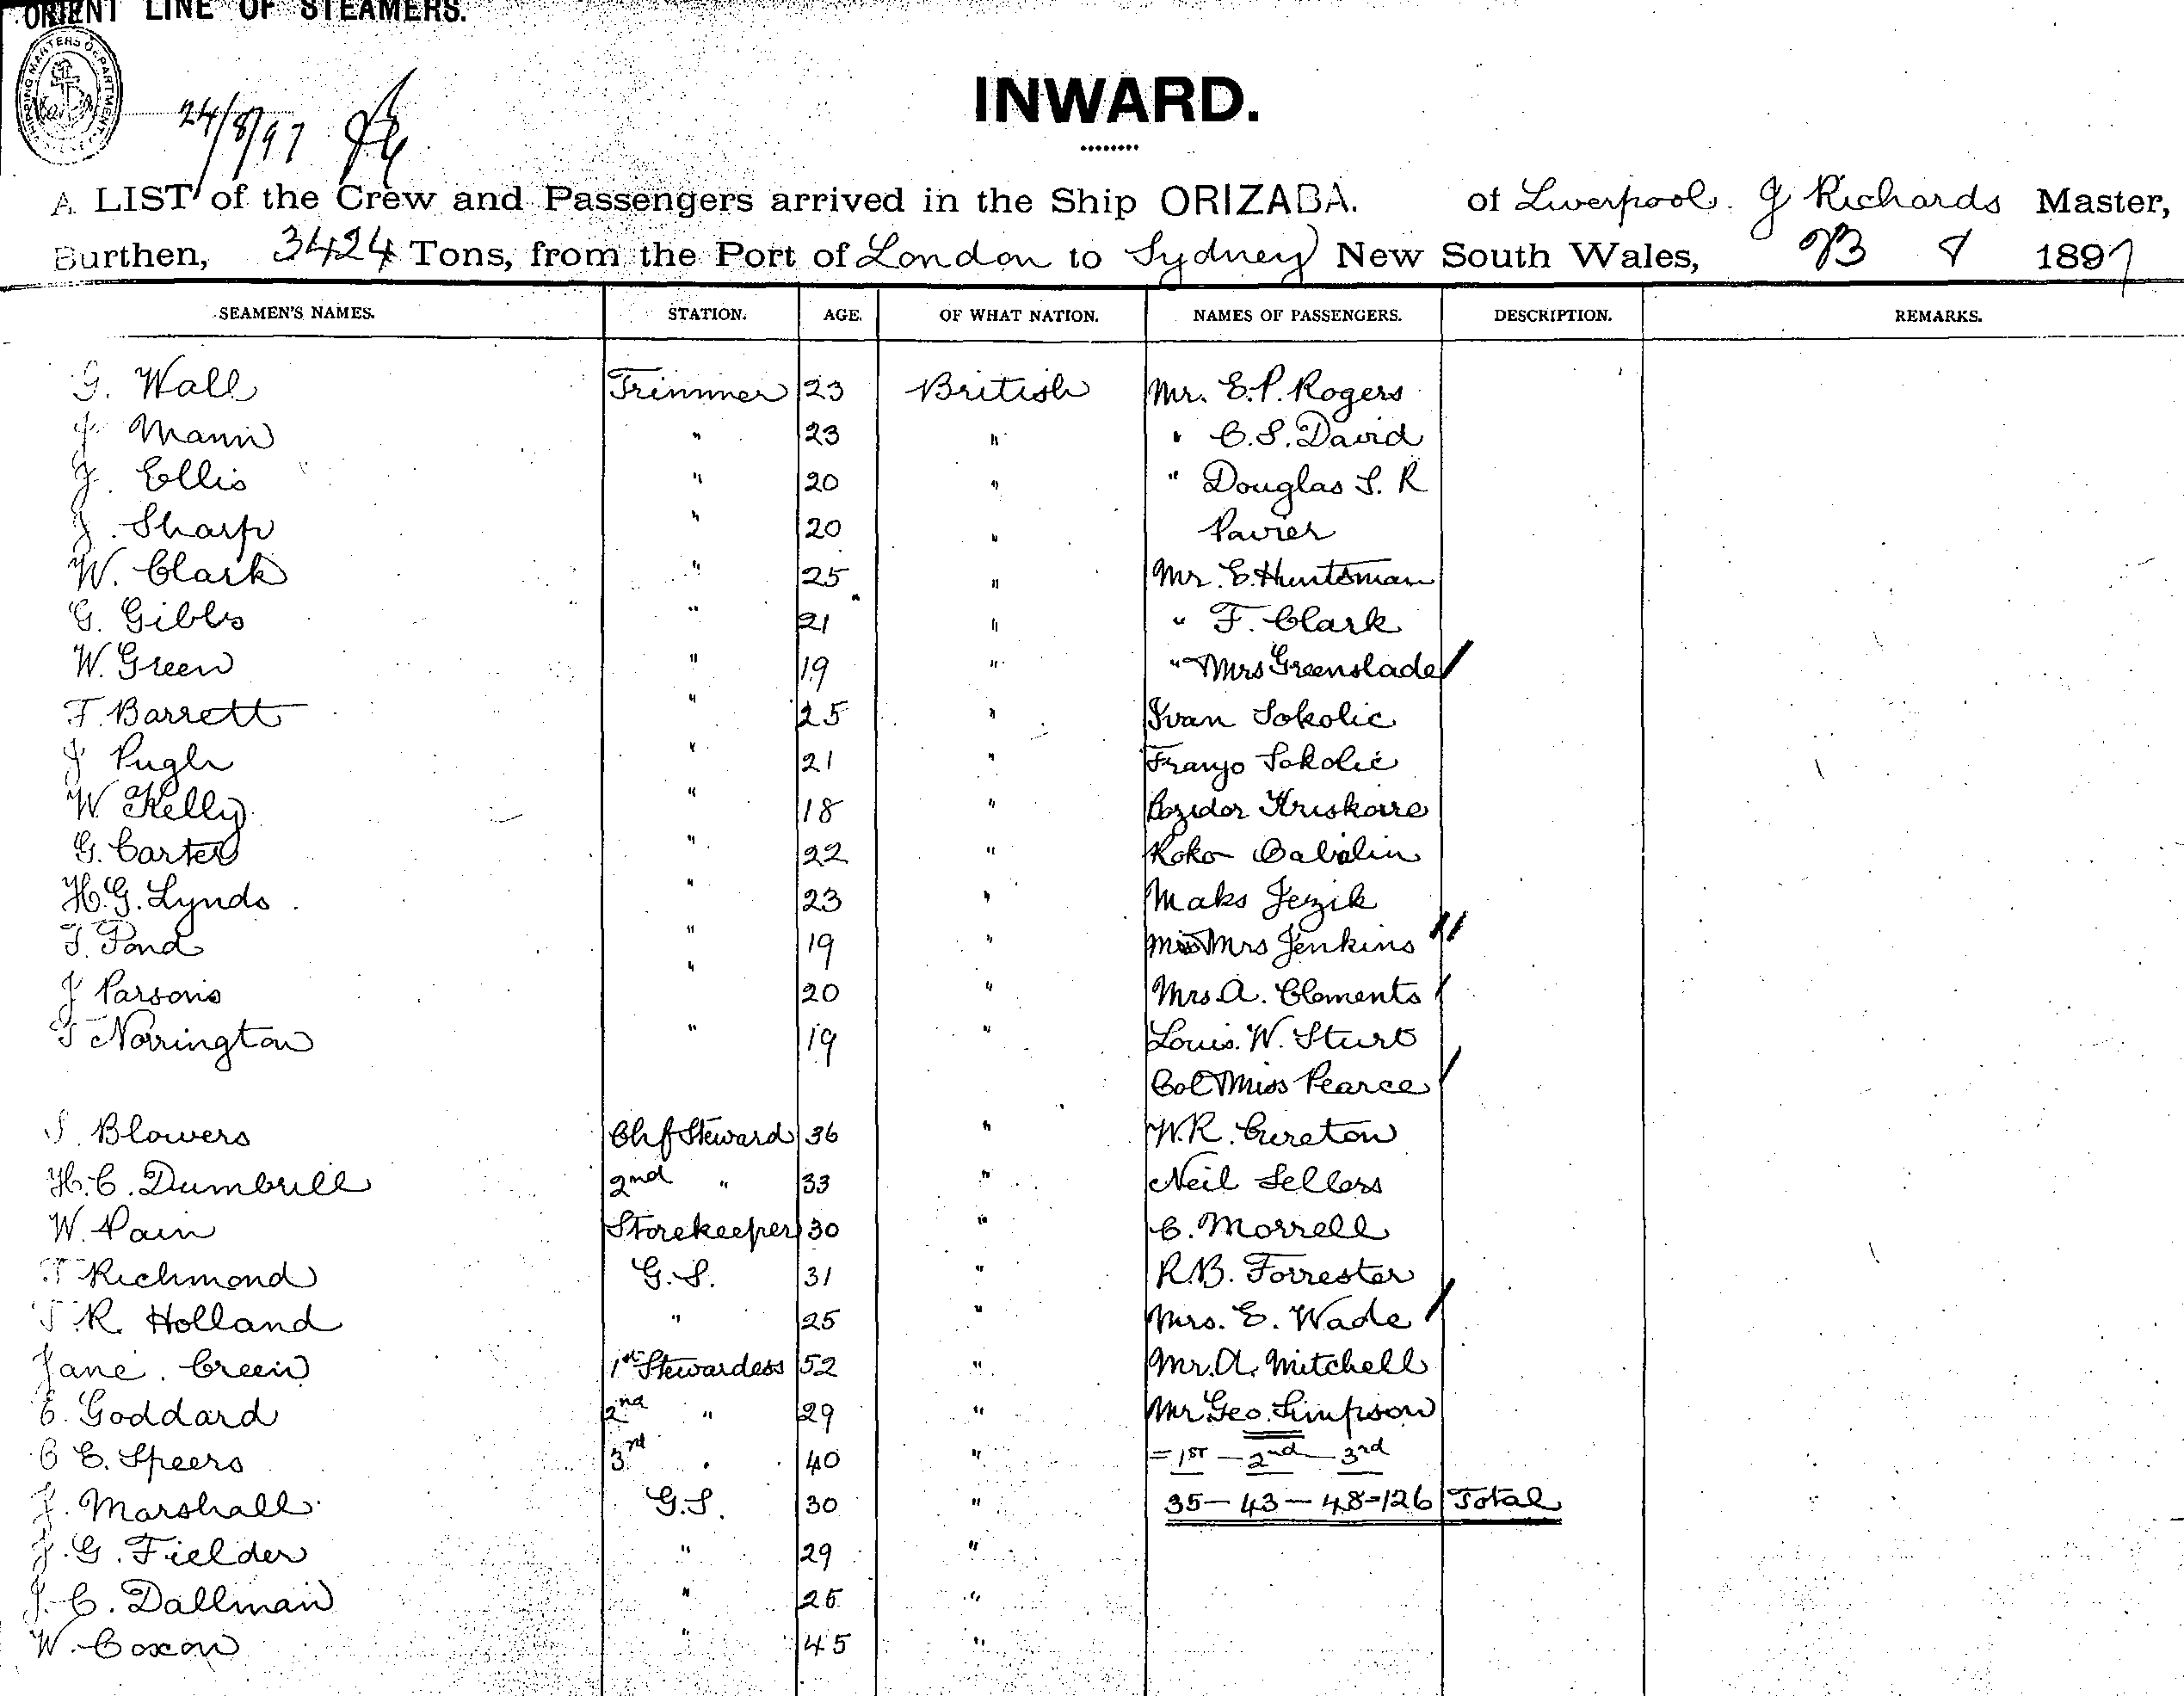 ORIENT LINE OF STEAMERS.
SHIPPING MASTERS DEPARTMENT
24/8/97
INWARD.
A LIST of the Crew and Passengers arrived in the Ship ORIZABA. of Liverpool. J Richards Master,
Burthen, 3424 Tons, from the Port of London to Sydney New South Wales, 23 8 1897
SEAMEN'S NAMES. STATION. AGE. OF WHAT NATION. NAMES OF PASSENGERS. DESCRIPTION. REMARKS.
G. Wall Trimmer 23 British Mr. E.P. Rogers
J. Mann " 23 " " C.S. David
J. Ellis " 20 " " Douglas S. R
J. Sharp " 20 " Pavier
W. Clark " 25 " Mr. E. Huntsman
G. Gibbs " 21 " " F. Clark
W. Green " 19 " " Mrs Greenslade
F. Barrett " 25 " Ivan Sokolic
J Pugh " 21 " Franjo Sokolic
W. Kelly " 18 " Bozidor
G. Carter " 22 " Roko Babalin
H.G. Lynds " 23 " Maks Jezik
T. Pond " 19 " Mrs Jenkins
J Parsons " 20 " Mrs A. Clements
T Norrington " 19 " Louis. W. Sturt
Miss Pearce
S. Blowers Chf Steward 36 " W.R. Cureton
H.C. Dumbrill 2nd " 33 " Neil Sellers
W. Pain Storekeeper 30 " C. Morrell
T Richmond G.S. 31 " R.B. Forrester
T.R. Holland " 25 " Mrs. E. Wade
Jane. Green 1st Stewardess 52 " Mr. A. Mitchell
E. Goddard 2nd " 29 " Mr Geo. Simpson
C E. Speers 3rd " 40 " = 1ST - 2nd - 3rd
J. Marshall G.S. 30 " 35 - 43 - 48 = 126 Total
J. G. Fielder " 29 "
J. C. Dallman " 25 "
W. Coxon " 45 "